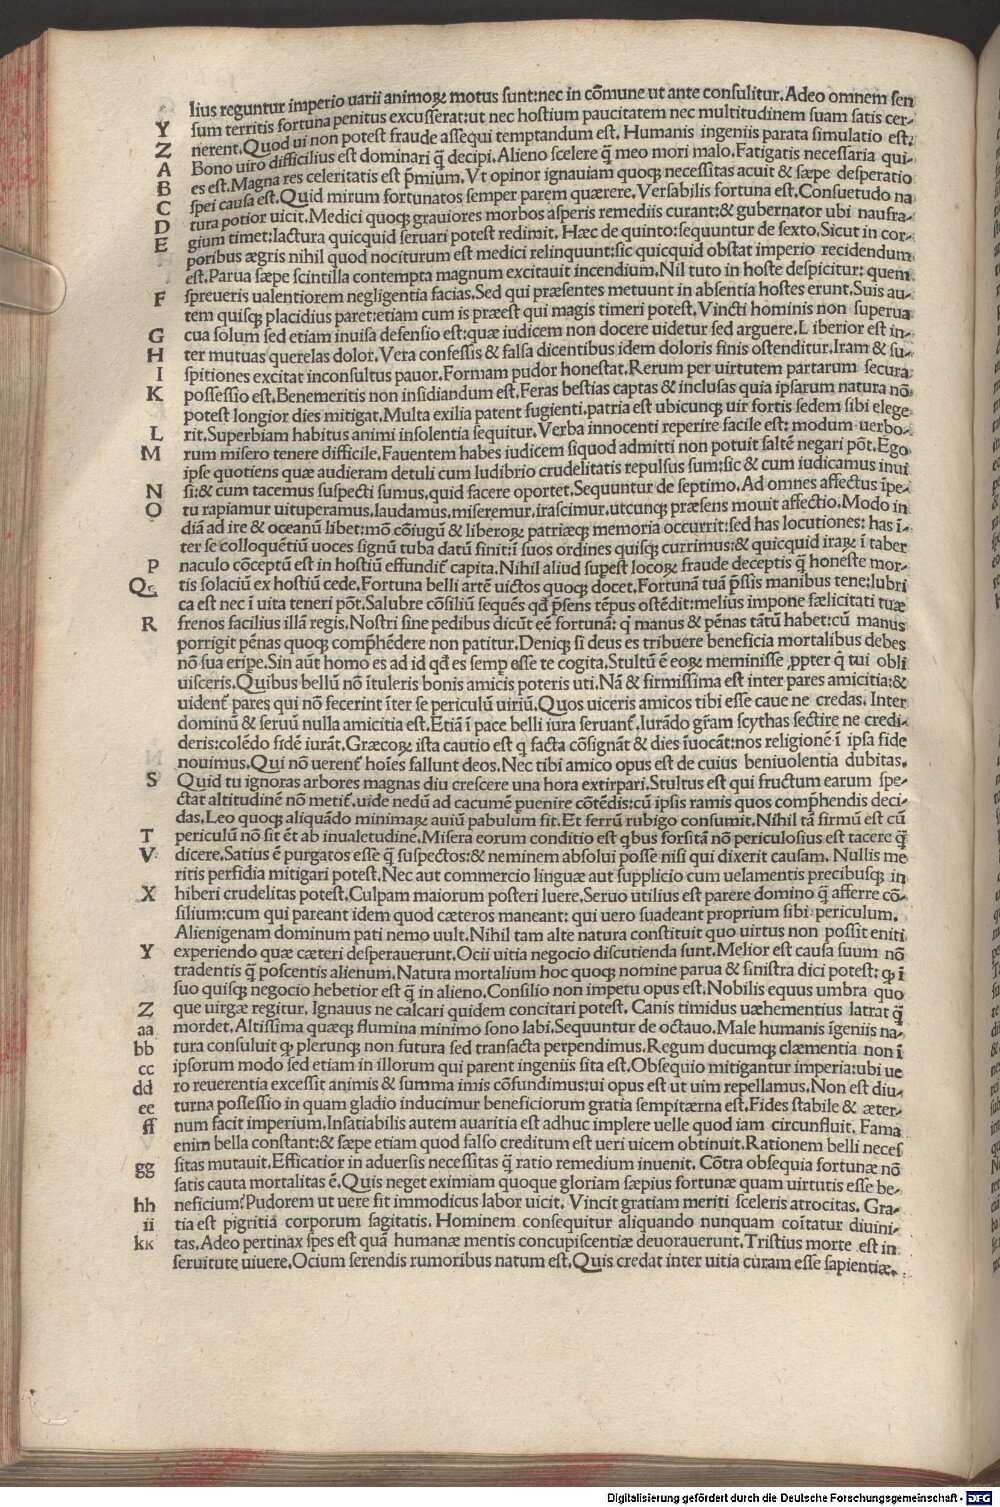 lius reguntur imperio uarii animoꝝ motus sunt:nec in cõmune ut ante consulitur.Adeo omnem sen
Y sum territis fortuna penitus excusserat:ut nec hostium paucitatem nec multitudinem suam satis cer-
Z nerent.Quod ui non potest fraude assequi temptandum est. Humanis ingeniis parata simulatio est.
A Bono uiro difficilius est dominari q̃ decipi.Alieno scelere q̃ meo mori malo.Fatigatis necessaria qui-
B es est.Magna res celeritatis est p̃mium.Vt opinor ignauiam quoqꝫ necessitas acuit & sæpe desperatio
C spei causa est.Quid mirum fortunatos semper parem quærere.Versabilis fortuna est.Consuetudo na
D tura potior uicit.Medici quoqꝫ grauiores morbos asperis remediis curant:& gubernator ubi naufra-
E gium timet:iactura quicquid seruari potest redimit. Hæc de quinto:sequuntur de sexto.Sicut in cor-
poribus ægris nihil quod nociturum est medici relinquunt:sic quicquid obstat imperio recidendum
est.Parua sæpe scintilla contempta magnum excitauit incendium.Nil tuto in hoste despicitur: quem
F spreueris ualentiorem negligentia facias.Sed qui præsentes metuunt in absentia hostes erunt.Suis au-
tem quisqꝫ placidius paret:etiam cum is præest qui magis timeri potest.Vincti hominis non superua
G cua solum sed etiam inuisa defensio est:quæ iudicem non docere uidetur sed arguere.Liberior est in-
H ter mutuas querelas dolor.Vera confessis & falsa dicentibus idem doloris finis ostenditur.Iram & su-
I spitiones excitat inconsultus pauor.Formam pudor honestat.Rerum per uirtutem partarum secura
K possessio est.Benemeritis non insidiandum est.Feras bestias captas & inclusas quia ipsarum natura nõ
potest longior dies mitigat.Multa exilia patent fugienti.patria est ubicunqꝫ uir fortis sedem sibi elege
L rit.Superbiam habitus animi insolentia sequitur.Verba innocenti reperire facile est: modum uerbo-
M rum misero tenere difficile.Fauentem habes iudicem siquod admitti non potuit saltẽ negari põt.Ego
ipse quotiens quæ audieram detuli cum ludibrio crudelitatis repulsus sum:sic & cum iudicamus inui
N si:& cum tacemus suspecti sumus.quid facere oportet.Sequuntur de septimo.Ad omnes affectus ĩpe-
O tu rapiamur uituperamus.laudamus.miseremur.irascimur.utcunqꝫ præsens mouit affectio.Modo in
diã ad ire & oceanũ libet:mõ cõiugũ & liberoꝝ patriæqꝫ memoria occurrit:sed has locutiones: has ĩ-
ter se colloquẽtiũ uoces signũ tuba datũ finit:ĩ suos ordines quisqꝫ currimus:& quicquid iraꝝ ĩ taber
P naculo cõceptũ est in hostiũ effundit̃ capita.Nihil aliud sup̃est locoꝝ fraude deceptis q̃ honeste mor-
Q tis solaciũ ex hostiũ cede.Fortuna belli artẽ uictos quoqꝫ docet.Fortunã tuã p̃ssis manibus tene:lubri
ca est nec ĩ uita teneri põt.Salubre cõsiliũ sequẽs qd̃ p̃sens tẽpus ostẽdit:melius impone fælicitati tuæ
R frenos facilius illã regis.Nostri sine pedibus dicũt eẽ fortunã: q̃ manus & pẽnas tãtũ habet:cũ manus
porrigit pẽnas quoqꝫ comp̃hẽdere non patitur. Deniqꝫ si deus es tribuere beneficia mortalibus debes
nõ sua eripe.Sin aũt homo es ad id qd̃ es semp esse te cogita.Stultũ ẽ eoꝝ meminisse ꝓpter q̃ tui obli
uisceris.Quibus bellũ nõ ĩtuleris bonis amicis poteris uti.Nã & firmissima est inter pares amicitia:&
uident̃ pares qui nõ fecerint ĩter se periculũ uiriũ.Quos uiceris amicos tibi esse caue ne credas. Inter
dominũ & seruũ nulla amicitia est.Etiã ĩ pace belli iura seruant̃.Iurãdo gr̃am scythas sectire ne credi-
deris:colẽdo fidẽ iurãt.Græcoꝝ ista cautio est q̃ facta cõsignãt & dies ĩuocãt:nos religionẽ ĩ ipsa fide
nouimus.Qui nõ uerent̃ hoĩes fallunt deos.Nec tibi amico opus est de cuius beniuolentia dubitas.
S Quid tu ignoras arbores magnas diu crescere una hora extirpari.Stultus est qui fructum earum spe-
ctat altitudinẽ nõ metit̃.uide nedũ ad cacumẽ puenire cõtẽdis:cũ ipsis ramis quos comp̃hendis deci-
das.Leo quoqꝫ aliquãdo minimaꝝ auiũ pabulum fit.Et ferrũ rubigo consumit.Nihil tã firmũ est cũ
T periculũ nõ sit ẽt ab inualetudinẽ.Misera eorum conditio est qbus forsitã nõ periculosius est tacere q̃
V dicere.Satius ẽ purgatos esse q̃ suspectos:& neminem absolui posse nisi qui dixerit causam. Nullis me
ritis perfidia mitigari potest.Nec aut commercio linguæ aut supplicio cum uelamentis precibusqꝫ in
X hiberi crudelitas potest.Culpam maiorum posteri luere.Seruo utilius est parere domino q̃ afferre cõ-
silium:cum qui pareant idem quod cæteros maneant: qui uero suadeant proprium sibi periculum.
Alienigenam dominum pati nemo uult.Nihil tam alte natura constituit quo uirtus non possit eniti
Y experiendo quæ cæteri desperauerunt.Ocii uitia negocio discutienda sunt.Melior est causa suum nõ
tradentis q̃ poscentis alienum.Natura mortalium hoc quoqꝫ nomine parua & sinistra dici potest: ꝙ ĩ
suo quisqꝫ negocio hebetior est q̃ in alieno.Consilio non impetu opus est.Nobilis equus umbra quo
Z que uirgæ regitur. Ignauus ne calcari quidem concitari potest. Canis timidus uæhementius latrat q̃
aa mordet.Altissima quæqꝫ flumina minimo sono labi.Sequuntur de octauo.Male humanis ĩgeniis na-
bb tura consuluit ꝙ plerunqꝫ non futura sed transacta perpendimus.Regum ducumqꝫ clæmentia non ĩ
cc ipsorum modo sed etiam in illorum qui parent ingeniis sita est.Obsequio mitigantur imperia:ubi ue
dd ro reuerentia excessit animis & summa imis cõfundimus:ui opus est ut uim repellamus.Non est diu-
ee turna possessio in quam gladio inducimur beneficiorum gratia sempitærna est.Fides stabile & æter-
ff num facit imperium.Insatiabilis autem auaritia est adhuc implere uelle quod iam circunfluit. Fama
enim bella constant:& sæpe etiam quod falso creditum est ueri uicem obtinuit.Rationem belli neces
gg sitas mutauit.Efficatior in aduersis necessitas q̃ ratio remedium inuenit. Cõtra obsequia fortunæ nõ
satis cauta mortalitas ẽ.Quis neget eximiam quoque gloriam sæpius fortunæ quam uirtutis esse be-
hh neficium?Pudorem ut uere fit immodicus labor uicit. Vincit gratiam meriti sceleris atrocitas. Gra-
ii tia est pigritiã corporum sagitatis. Hominem consequitur aliquando nunquam coĩtatur diuini-
kk tas.Adeo pertinax spes est quã humanæ mentis concupiscentiæ deuorauerunt.Tristius morte est in
seruitute uiuere.Ocium serendis rumoribus natum est.Quis credat inter uitia curam esse sapientiæ.
Digitalisierung gefördert durch die Deutsche Forschungsgemeinschaft - DFG